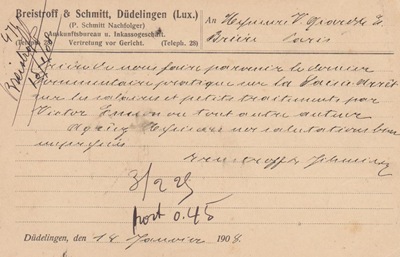 Breistroff & Schmitt, Düdelingen (Lux.)
(P. Schmitt Nachfolger)
Auskunftsbureau u. Inkassogeschäft.
(Telephon 28) Vertretung vor Gericht. (Teleph. 28)
An Messieurs V. Giard & E.
Brière Paris
Prière de nous faire parvenir le dernier
commentaire pratique sur la Saisie arrêt
sur les salaires et petits traitements par
Victor Emion ou tout autre auteur
Agréez Messieurs nos salutations bien
empressées
Breistroff & Schmitt
3/2 25
port 0.45
Düdelingen, den 18 Janvier 1908.